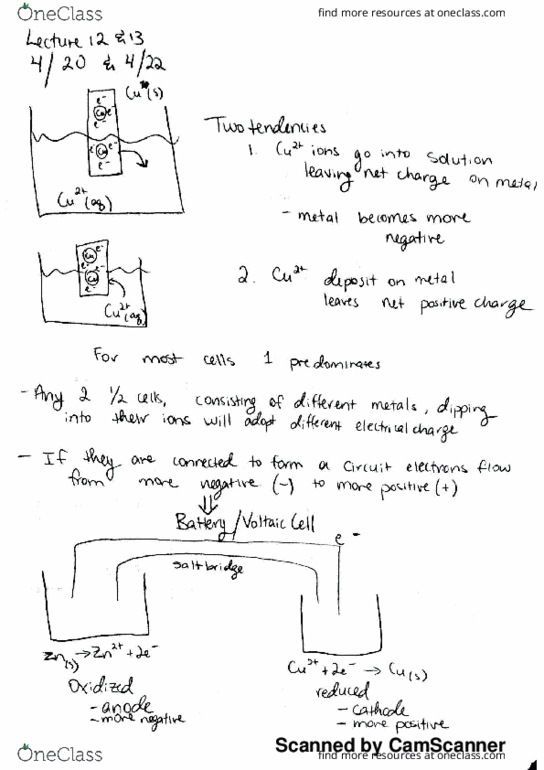 OneClass
find more resources at oneclass.com
Lecture 12 & 13
4/20 & 4/22
Cu(s)
e-
Cu e-
e-
e- Cu e-
e-
Cu2+(aq)
Two tendencies
1. Cu2+ ions go into solution
leaving net charge on metal
- metal becomes more
negative
e-
Cu
e- e-
Cu
e-
Cu2+(aq)
2. Cu2+ deposit on metal
leaves net positive charge
For most cells 1 predominates
- Any 2 1/2 cells, consisting of different metals, dipping
into their ions will adopt different electrical charge
- If they are connected to form a circuit electrons flow
from more negative (-) to more positive (+)
⇓
Battery/Voltaic Cell
e-
salt bridge
Zn(s) → Zn2+ + 2e-
Oxidized
- anode
- more negative
Cu2+ + 2e- → Cu(s)
reduced
- cathode
- more positive
Scanned by CamScanner
OneClass
find more resources at oneclass.com